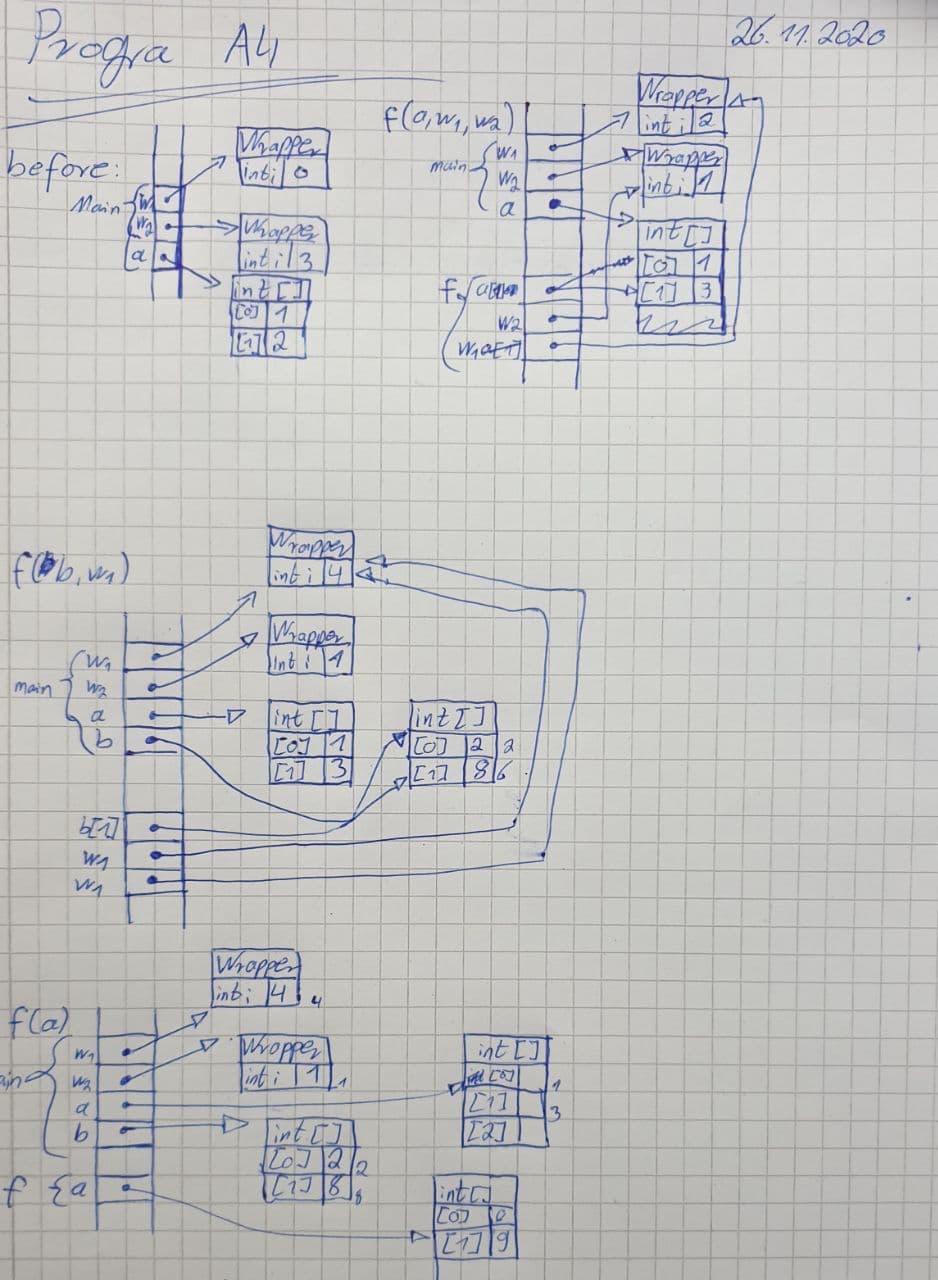 Progra A4
26.11.2020
before:
Main
w1
w2
a
Wrapper
int i 0
Wrapper
int i 3
int[]
[0] 1
[1] 2
f(a,w1,w2)
main
w1
w2
a
f
a
w2
w1
Wrapper
int i 2
Wrapper
int i 1
int[]
[0] 1
[1] 3
f(b,w1)
main
w1
w2
a
b
b[1]
w1
w1
Wrapper
int i 4
Wrapper
int i 1
int[]
[0] 1
[1] 3
int[]
[0] 2 2
[1] 8 6
f(a)
ain
w1
w2
a
b
f {a
Wrapper
int i 4 4
Wrapper
int i 1 1
int[]
[0] 2 2
[1] 8 8
int[]
[0] 1
[1] 3
[2]
int[]
[0] 0
[1] 9